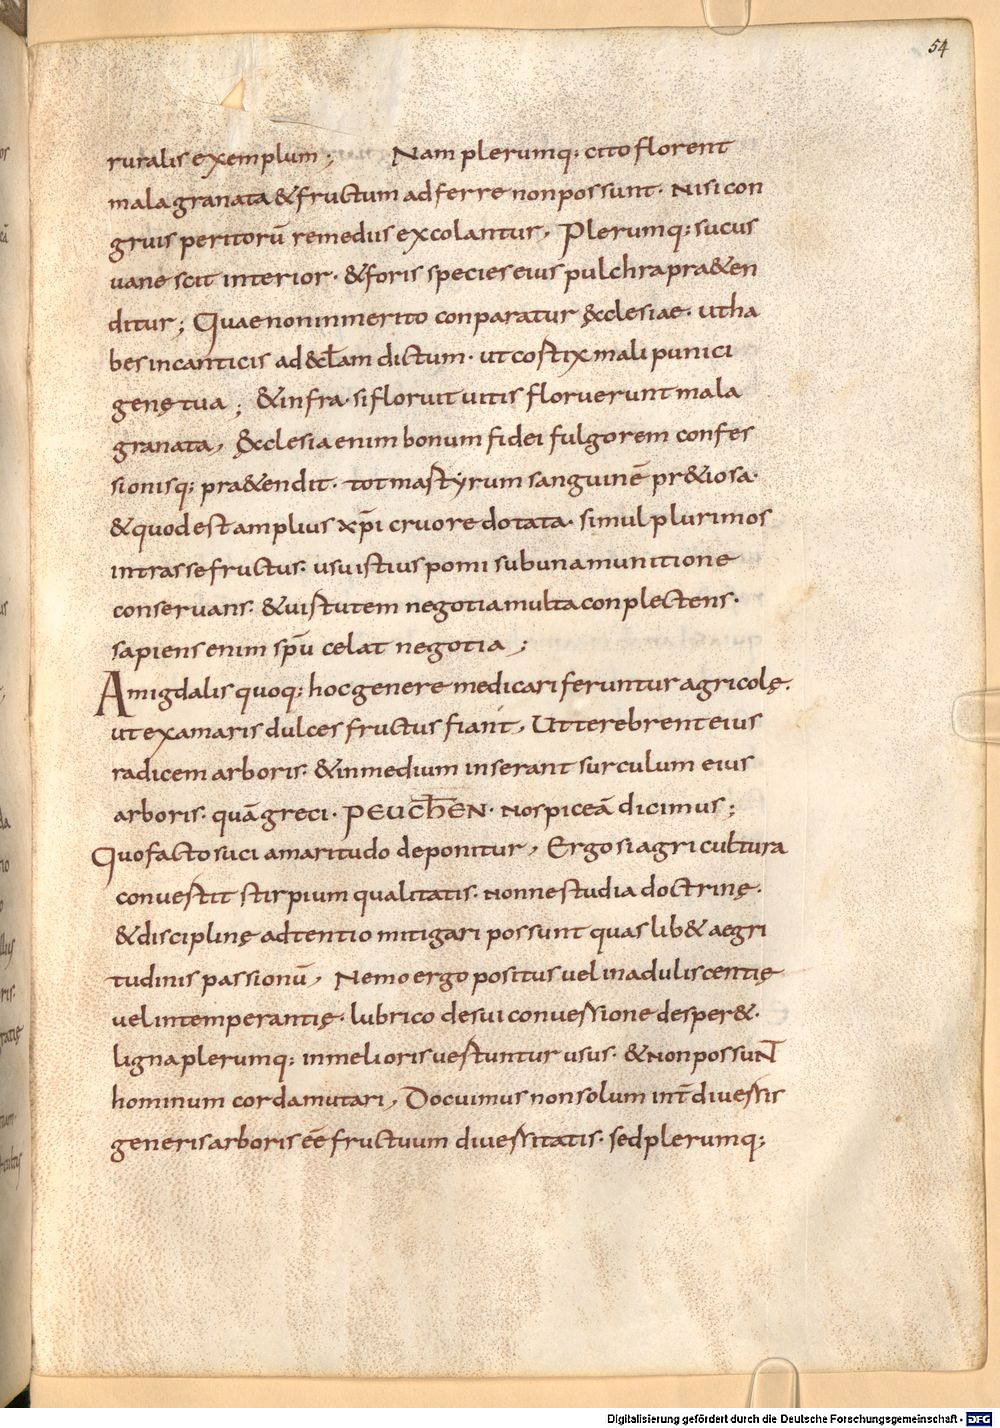 54
ruralis exemplum; Nam plerumq; cito florent
mala granata & fructum adferre non possunt. Nisi con
gruis peritorū remediis excolantur, Plerumq; sucus
uanescit interior. & foris species eius pulchra pra&en
ditur; Quae non inmerito conparatur ęcclesiae. ut ha
bes in canticis ad &cl̄am dictum. ut cortix mali punici
genę tua; & infra. si floruit uitis floruerunt mala
granata, Ęcclesia enim bonum fidei fulgorem confes
sionisq; pra&endit. tot martyrum sanguinē pr&iosa.
& quod est amplius xp̄i cruore dotata. simul plurimos
intra se fructus. usu istius pomi sub una munitione
conseruans. & uirtutem negotia multa conplectens.
sapiens enim spū celat negotia;
Amigdalis quoq; hoc genere medicari feruntur agricolę.
ut ex amaris dulces fructus fiant, Ut terebrent eius
radicem arboris. & in medium inserant surculum eius
arboris. quā greci. PEUCH̄EN. Nos piceā dicimus;
Quo facto suci amaritudo deponitur, Ergo si agri cultura
conuertit stirpium qualitatis. nonne studia doctrinę.
& disciplinę adtentio mitigari possunt quas lib& aegri
tudinis passionū, Nemo ergo positus uel in aduliscentię
uel intemperantię. lubrico de sui conuersione desper&.
ligna plerumq; in melioris uertuntur usus. & non possuNT
hominum corda mutari, Docuimus non solum int̄ diuersis
generis arboris ēē fructuum diuersitatis. sed plerumq;
Digitalisierung gefördert durch die Deutsche Forschungsgemeinschaft - DFG